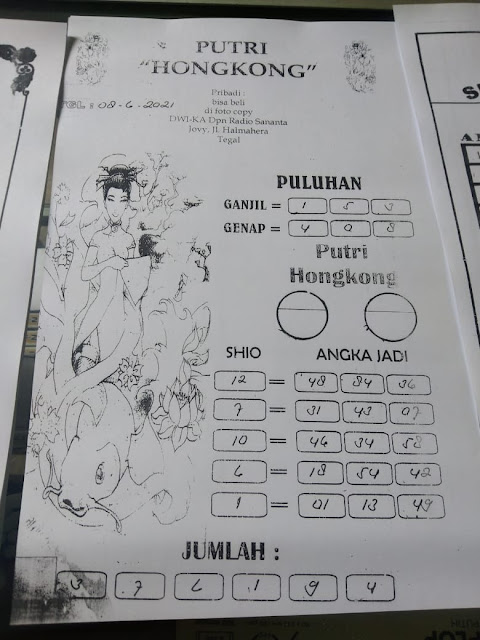 PUTRI
"HONGKONG"
Pribadi :
bisa beli
di foto copy
DWI-KA Dpn Radio Sananta
Jovy. Jl. Halmahera
Tegal
TGL : 08-6-2021
PULUHAN
GANJIL = 1 5 3
GENAP = 4 0 8
Putri
Hongkong
SHIO ANGKA JADI
12 = 48 84 36
7 = 31 43 07
10 = 46 34 58
6 = 18 54 42
1 = 01 13 49
JUMLAH :
3 7 6 1 9 4